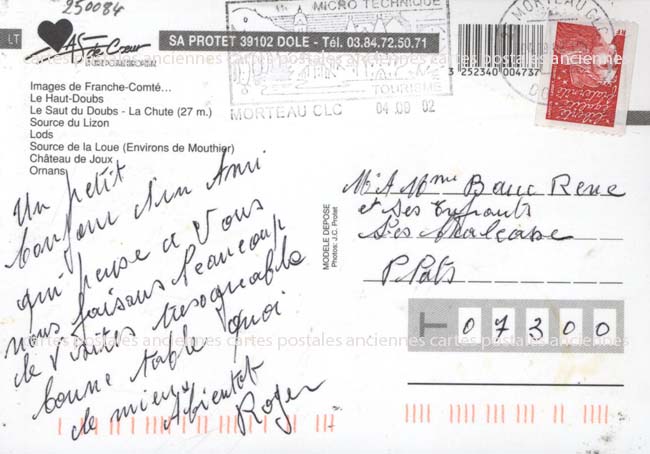 250084
LT
As de Cœur
SA PROTET 39102 DOLE - Tél. 03.84.72.50.71
MICRO TECHNIQUE
TOURISME
MORTEAU CLC 04 09 02
MORTEAU CLC
3 252340 004737
cartes postales anciennes cartes postales anciennes cartes postales anciennes
Images de Franche-Comté...
Le Haut-Doubs
Le Saut du Doubs - La Chute (27 m.)
Source du Lizon
Lods
Source de la Loue (Environs de Mouthier)
Château de Joux
Ornans
MODELE DEPOSE
Photos: J.C. Protet
Un petit
bonjour d'un Ami
qui pense a Vous
nous faisons beaucoup
de Visites
bonne table quoi
de mieux Abientot
Roger
Mr & Mme Rene
et Ses Enfants
Les
P Plats
07300
cartes postales anciennes cartes postales anciennes cartes postales anciennes
cartes postales anciennes cartes postales anciennes cartes postales anciennes